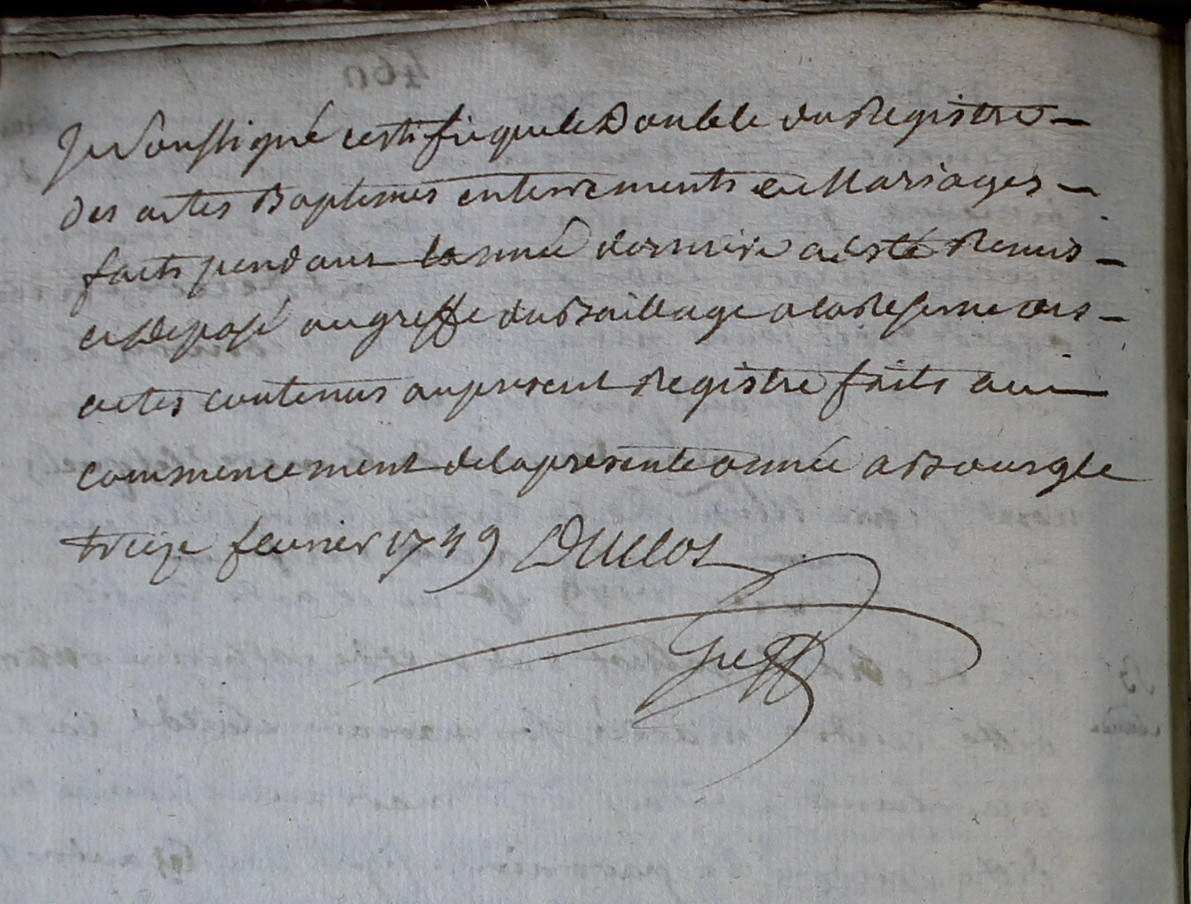 Je Soussigné certifie que le Double du Registre
des actes Baptemes enterrements et Mariages
faits pendant lannée derniere a esté Remis
et Deposé au greffe du Bailliage a la Reserve des
actes contenus au present Registre faits au
commencement de la presente année a Bourg le
treize fevrier 1749 Duclos
Greff